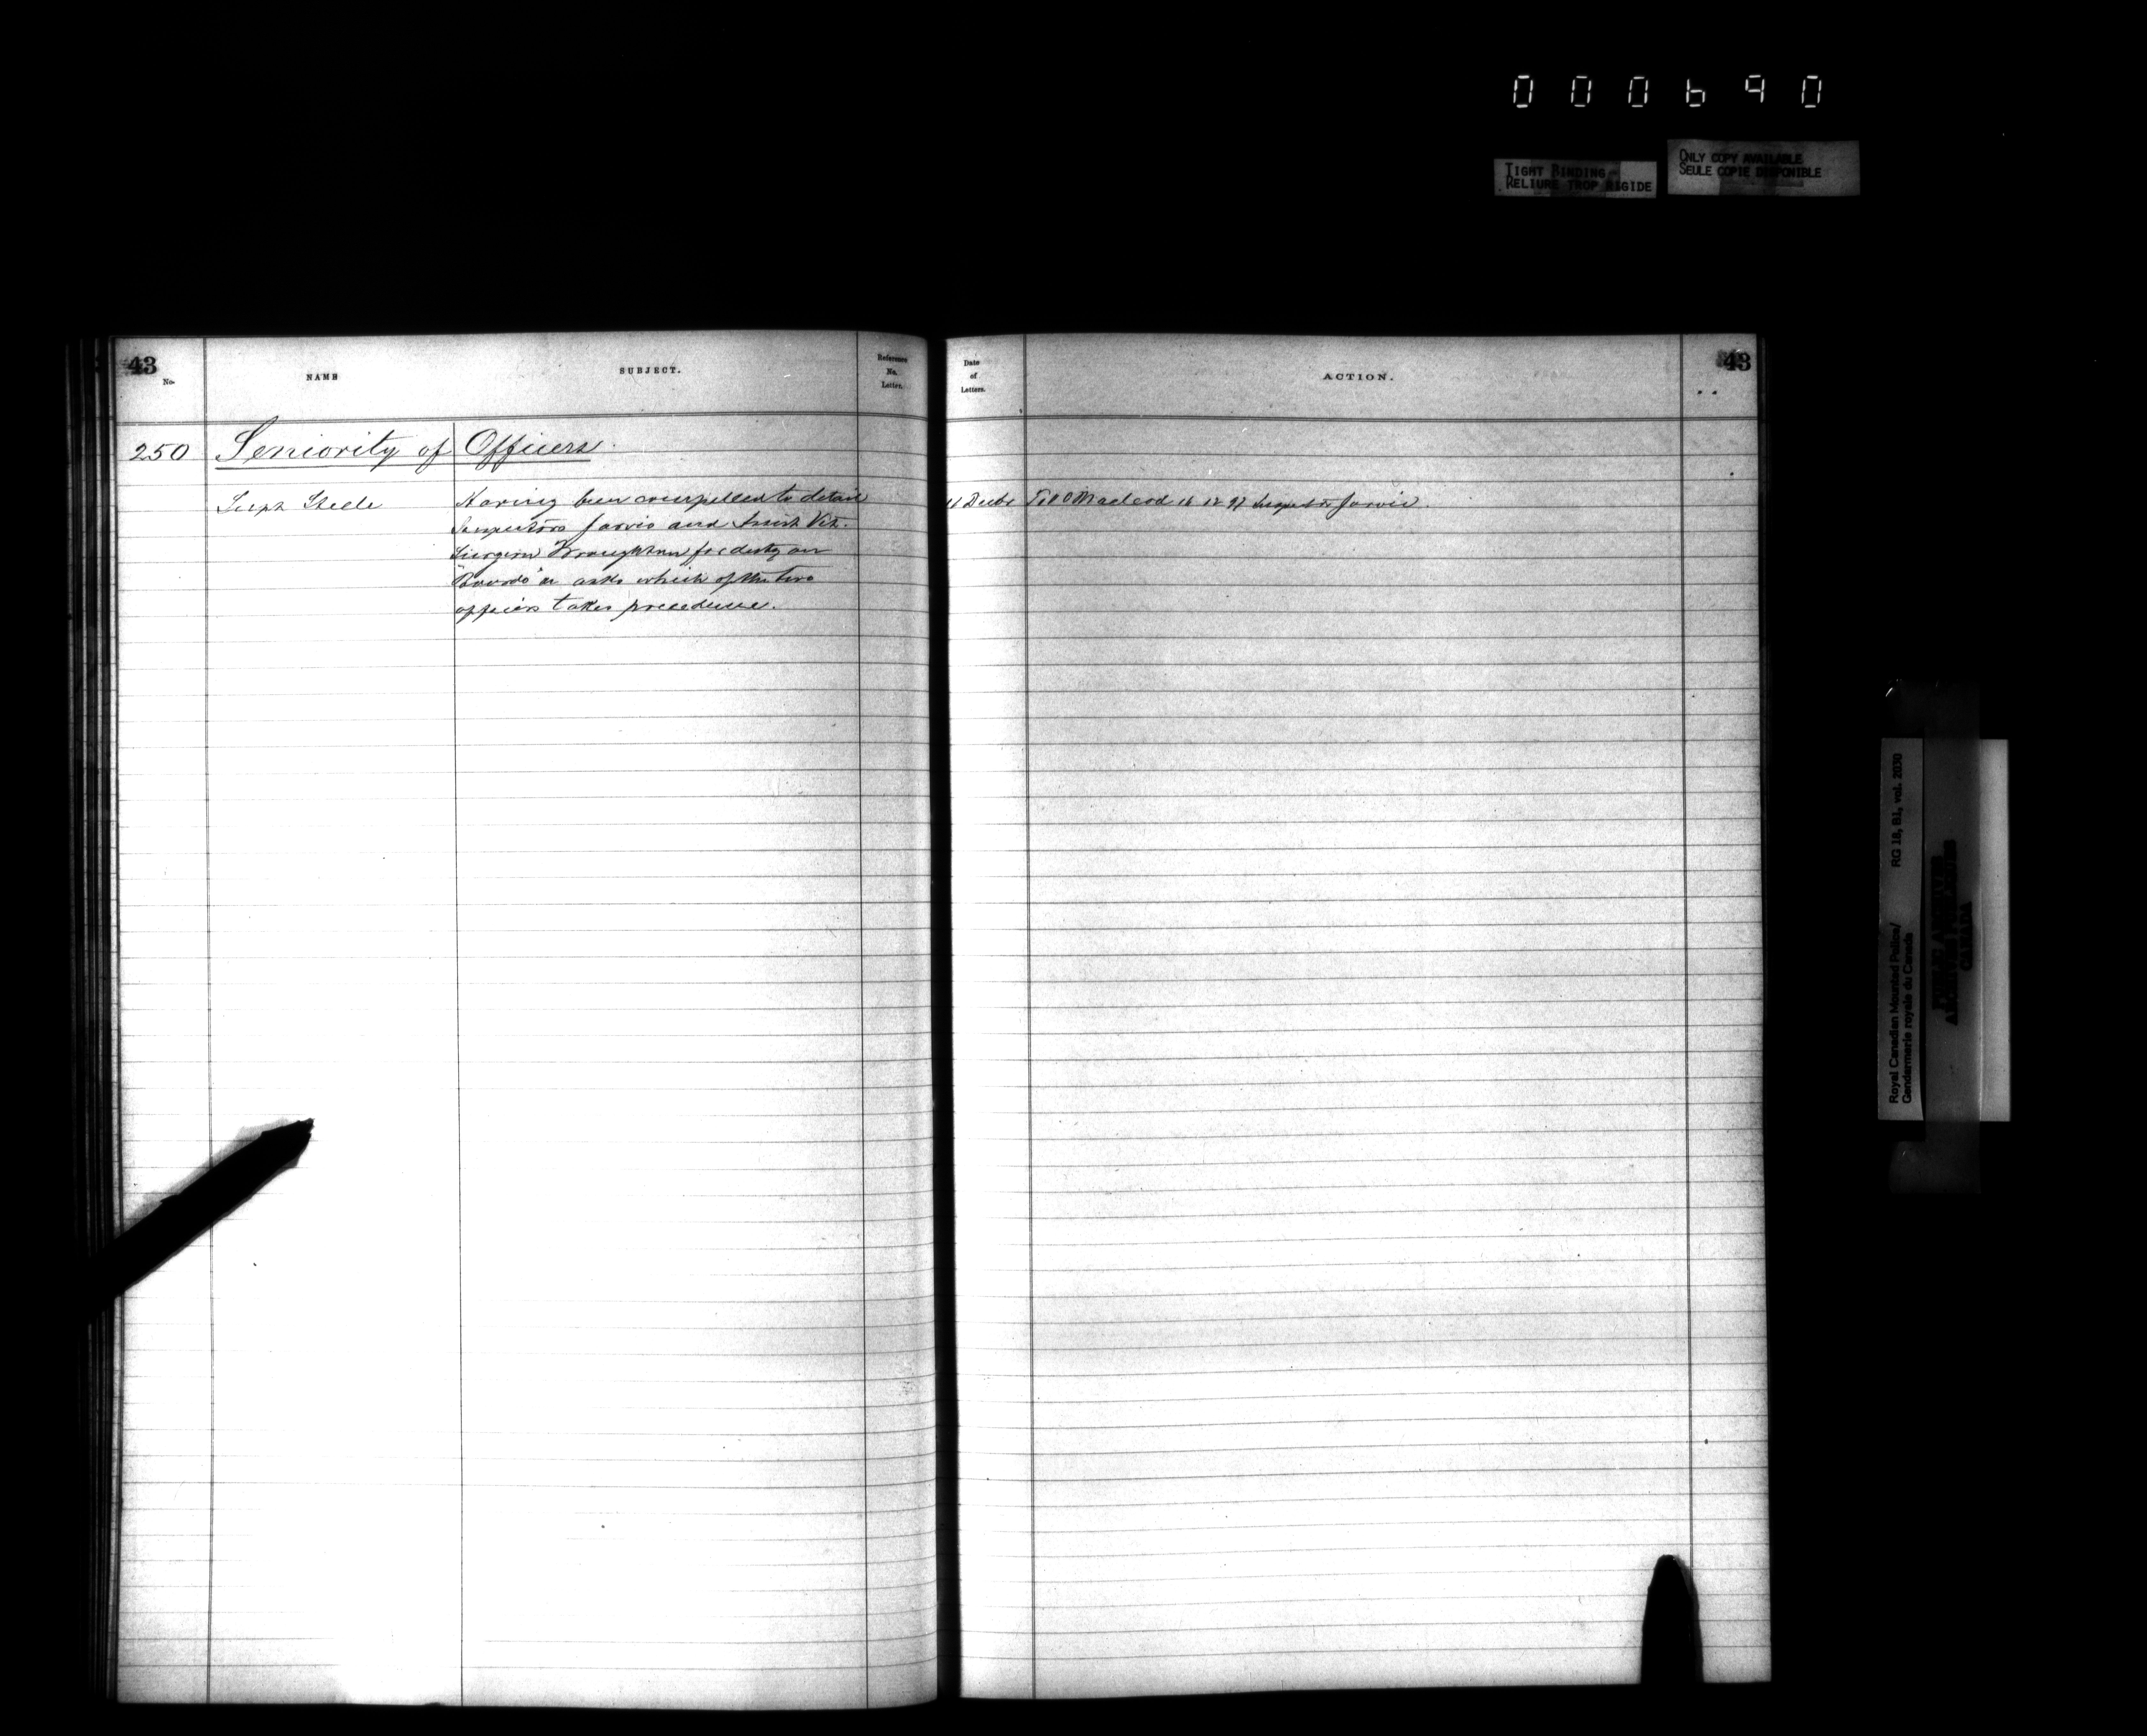 000690
TIGHT BINDING
RELIURE TROP RIGIDE
ONLY COPY AVAILABLE
SEULE COPIE DISPONIBLE
43
No.
NAME
SUBJECT.
Reference
No.
Letter.
250 Seniority of Officers.
Supt Steele
Having been compelled to detail
Inspectors Jarvis and Assist Vet.
Surgeon Wroughton for duty on
"Boards" he asks which of the two
officers takes precedence.
Date
of
Letters.
ACTION.
43
11 Decbr
Tel O Macleod 16 12 97 Inspector Jarvis.
Royal Canadian Mounted Police/
Gendarmerie royale du Canada
RG 18, B1, vol. 2030
CANADA